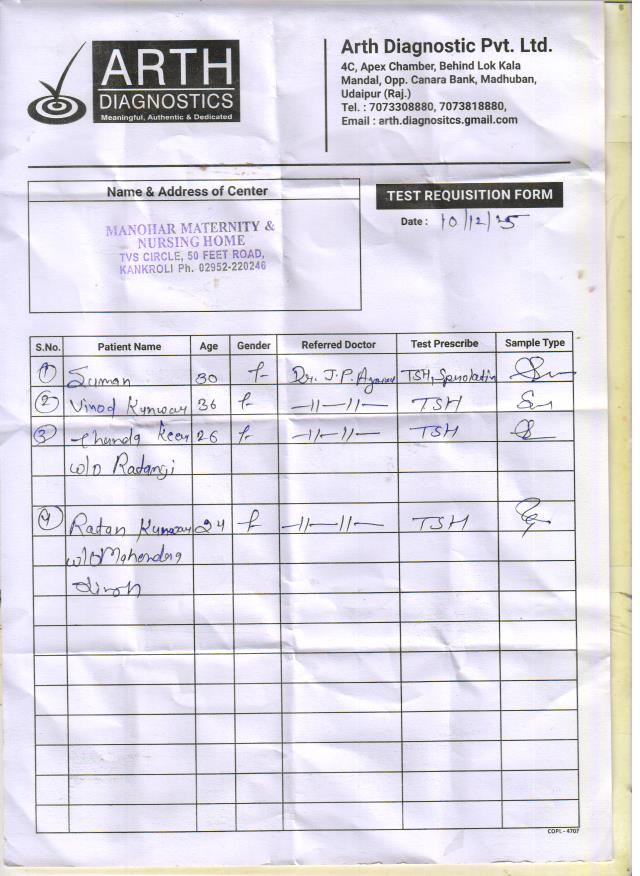 ARTH
DIAGNOSTICS
Meaningful, Authentic & Dedicated
Arth Diagnostic Pvt. Ltd.
4C, Apex Chamber, Behind Lok Kala
Mandal, Opp. Canara Bank, Madhuban,
Udaipur (Raj.)
Tel. : 7073308880, 7073818880,
Email : arth.diagnositcs.gmail.com
Name & Address of Center
MANOHAR MATERNITY &
NURSING HOME
TVS CIRCLE, 50 FEET ROAD,
KANKROLI Ph. 02952-220246
TEST REQUISITION FORM
Date : 10/12/25
S.No. Patient Name Age Gender Referred Doctor Test Prescribe Sample Type
1 Suman 30 f Dr. J.P. TSH,
2 Vinod Kunwar 36 f -11-11- TSH
3 Chanda 26 f -11-11- TSH
w/o Ratangi
4 Ratan Kunwar 24 f -11-11- TSH
w/o Mahendra
COPL - 4707